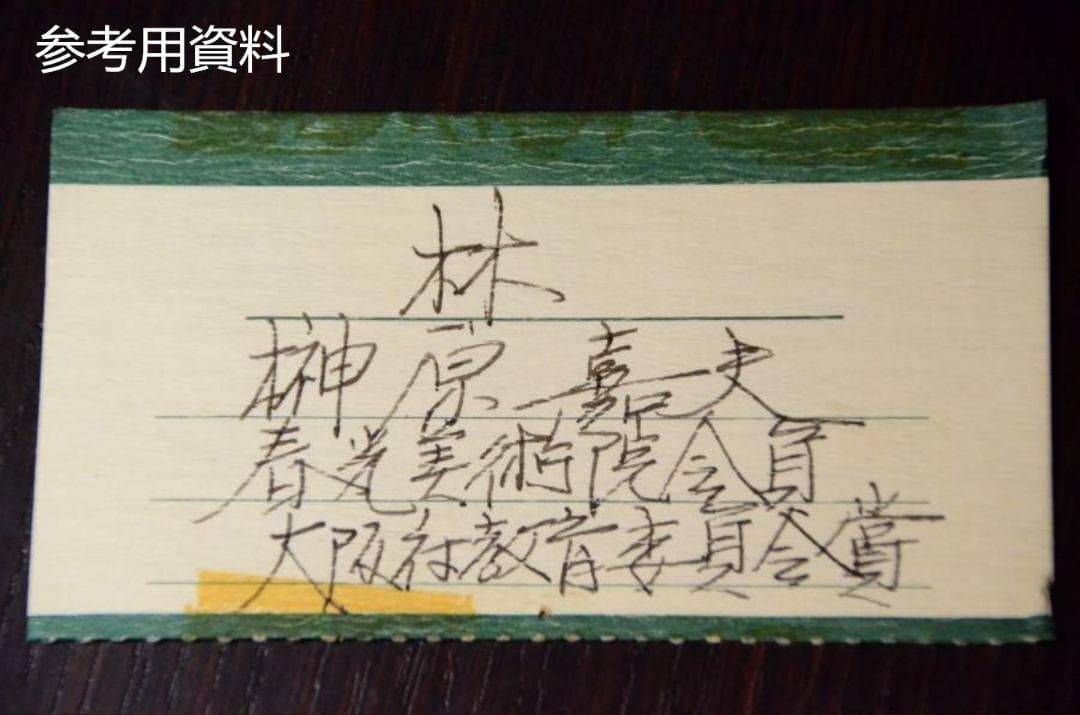 参考用資料
林
榊原嘉夫
春光美術院会員
大阪府教育委員会賞